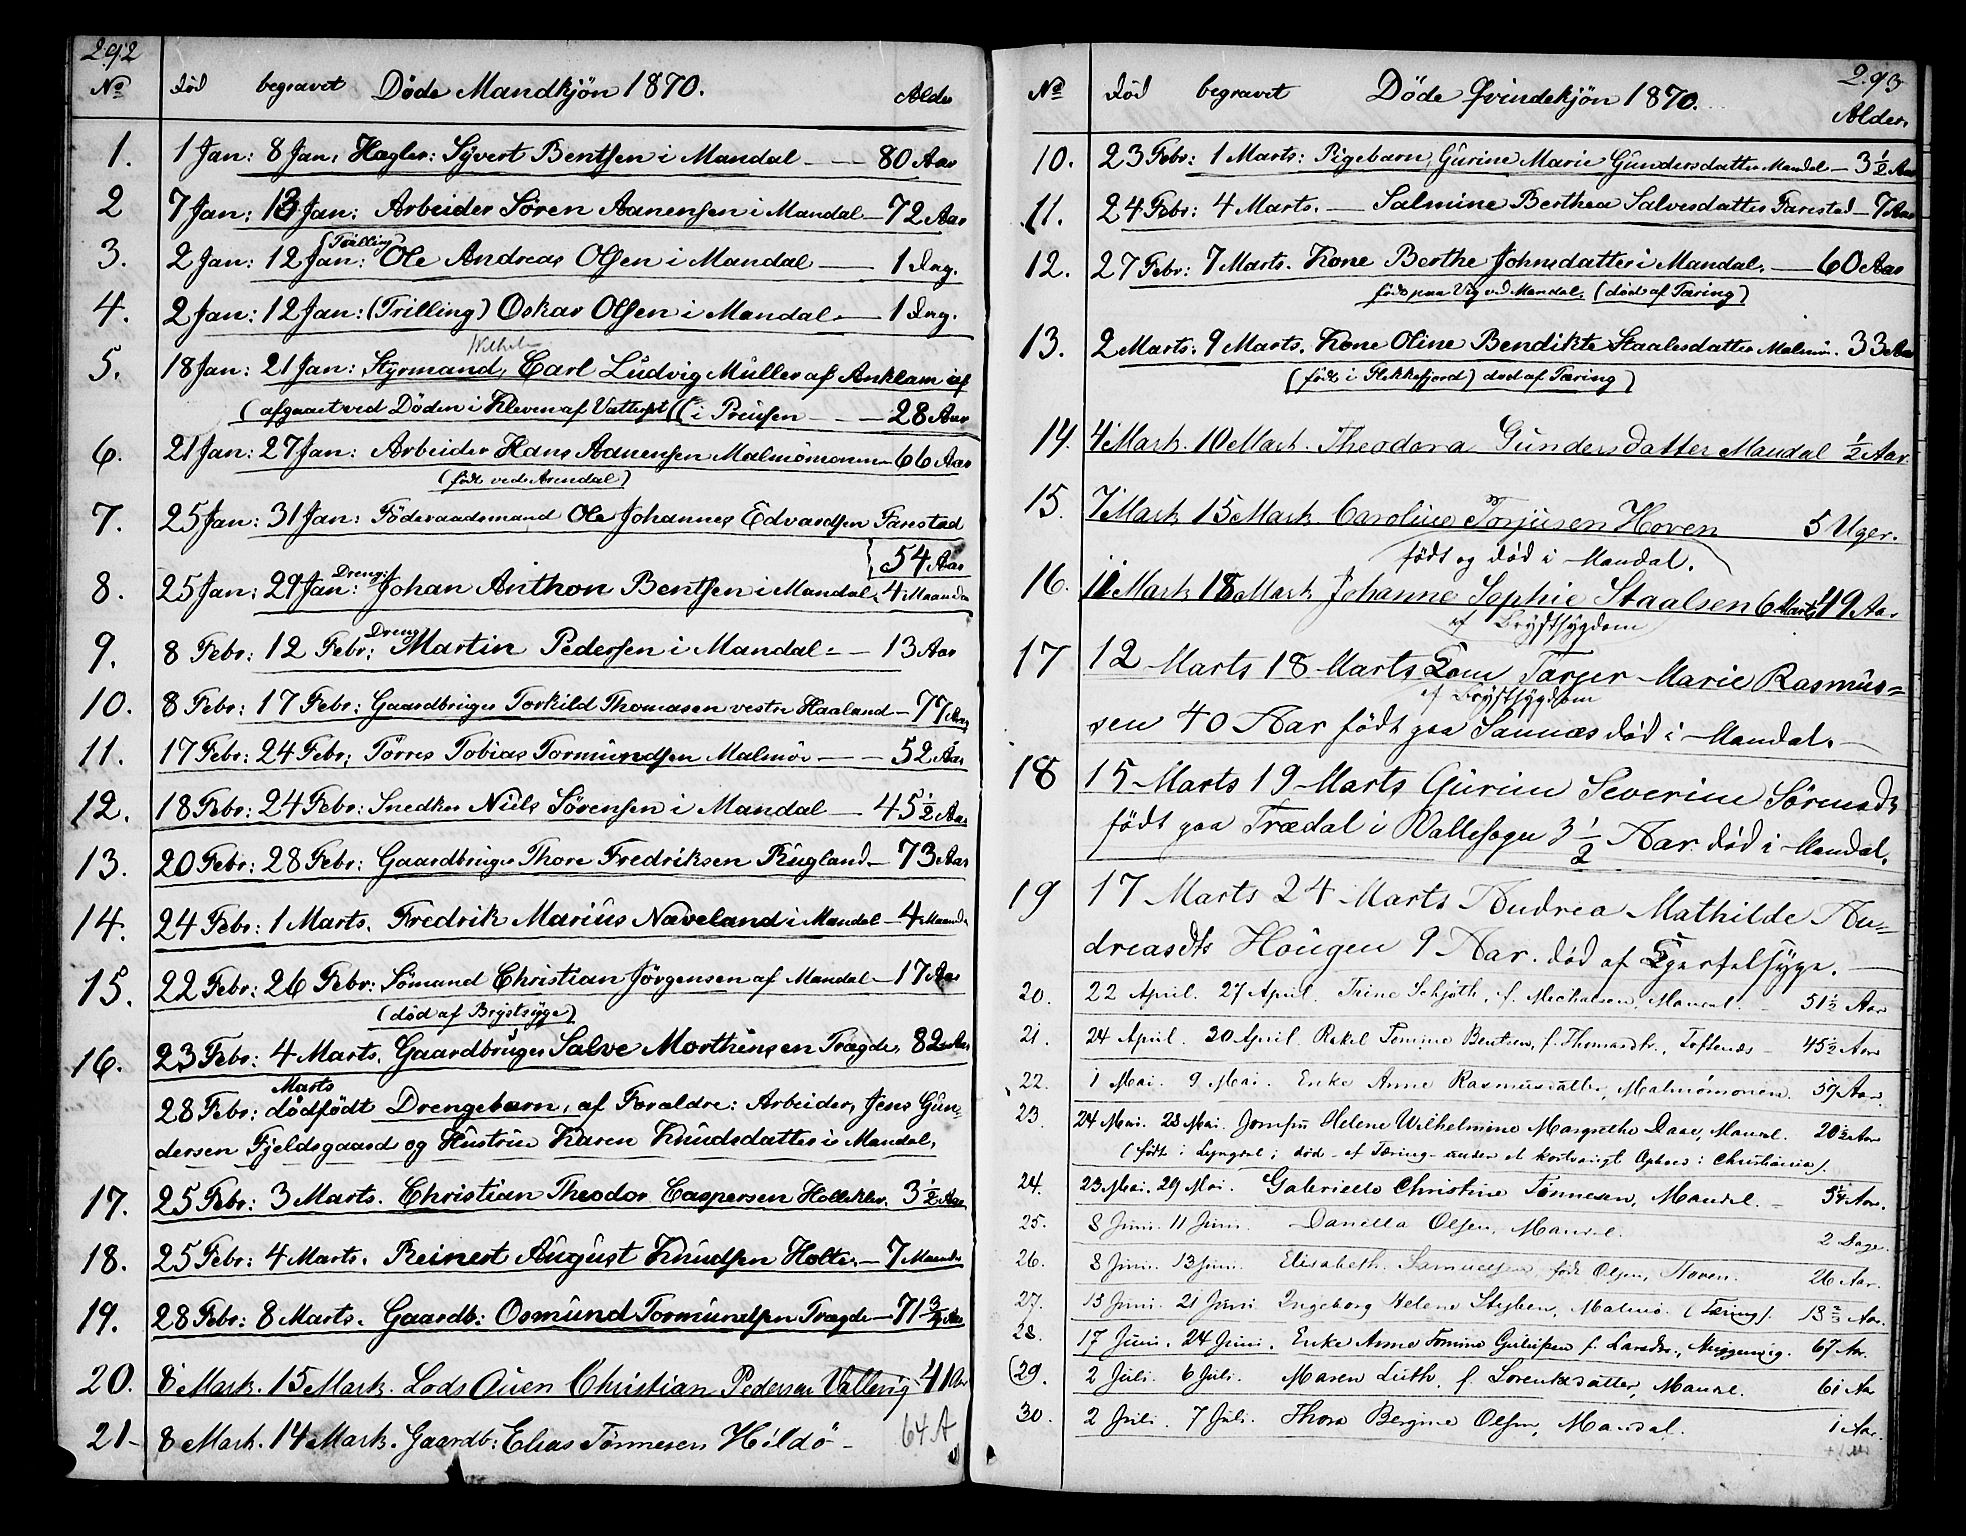 292
No død begravet Døde Mandkjön 1870. Alder
1. 1 Jan: 8 Jan: Hægler: Syvert Bentsen i Mandal — 80 Aar
2 7 Jan: 13 Jan: Arbeider Sören Aanensen i Mandal — 72 Aar
3. 2 Jan: 12 Jan: (Trilling) Ole Andreas Olsen i Mandal — 1 Dag.
4. 2 Jan: 12 Jan: (Trilling) Oskar Olsen i Mandal — 1 Dag.
Wilhelm
5. 18 Jan: 21 Jan: Styrmand, Carl Ludvig Müller af Anklam
(afgaaet ved Döden i Kleven af i Preusen — 28 Aar
6. 21 Jan: 27 Jan: Arbeider Hans Aanensen Malmömonen 66 Aar
(född ved Arendal)
7. 25 Jan: 31 Jan: Föderaadsmand Ole Johannes Edvardsen Farestad
54 Aar
8. 25 Jan: 29 Jan: Dreng: Johan Anthon Bentsen i Mandal 4 Maaneder
9. 8 Febr: 12 Febr: Dreng Martin Pedersen i Mandal — 13 Aar
10. 8 Febr: 17 Febr: Gaardbruger Torkild Thomasen vestre Haaland — 77 Aar
11. 17 Febr: 24 Febr: Törres Tobias Tormundsen Malmö — 52 Aar
12. 18 Febr: 24 Febr: Snedker Niels Sörensen i Mandal — 45 1/2 Aar
13. 20 Febr: 28 Febr: Gaardbruger Thore Fredriksen Rugland — 73 Aar
14. 24 Febr: 1 Marts. Fredrik Marius Naveland i Mandal — 4 Maand
15. 22 Febr: 26 Febr: Sömand Christian Jörgensen af Mandal — 17 Aar
(død af Brystsyge)
16. 23 Febr: 4 Marts. Gaardbruger Salve Morthensen Trægde, 82 Aar
Marts
28 Febr: dödfödt Drengebarn, af Foraldre: Arbeider, Jens Gun-
dersen Fjeldsgaard og Hustrue Karen Knudsdatter i Mandal,
17. 25 Febr: 3 Marts. Christian Theodor Caspersen 3 1/2 Aar
18. 25 Febr: 4 Marts. Reinert August Knudsen Holte — 7 Maand
19. 28 Febr: 8 Marts. Gaardb: Osmund Tormundsen Trægde — 71 3/4 Aar
20. 8 Mark. 15 Mark. Lods Auen Christian Pedersen 41
21 - 8 Mark. 14 Mark. Gaardb: Elias Tönnesen Hildö - 64 A

293
No død begravet Döde Qvindekjön 1870. Alder.
10. 23 Febr: 1 Marts: Pigebarn, Gurine Marie Gundersdatter Mandal — 3 1/2 Aar
11. 24 Febr: 4 Marts. — Salmine Berthea Salvesdatter Farestad — 7 Aar
12. 27 Febr: 7 Marts. Kone Berthe Johnsdatter i Mandal. — 60 Aar
födt paa Vig ved Mandal. (död af Tæring)
13. 2 Marts. 9 Marts. Kone Oline Bendikte Staalesdatter Malmö. 33 Aar
(födt i Flekkefjord) död af Tæring)
14. 4 Mark. 10 Mark. Theodora Gundersdatter Mandal 1/2 Aar.
15 7 Mark 15 Mark Caroline Torjusen Hoven 5 Uger.
födt og död i Mandal.
16. 11 Mark 18 Mark Johanne Sophie Staalsen 6 Marts 49 Aar
af Brystsygdom
17 12 Marts 18 Marts Marie Rasmus=
af Brystsygdom
sen 40 Aar födt paa Sannæs död i Mandal. —
18 15 Marts 19 Marts Gurine Severine Sörensd
födt paa Trædal i Vallesogn 3 1/2 Aar. död i Mandal.
19 17 Marts 24 Marts Andrea Mathilde An=
dreasdt Hougen 9 Aar. död af —
20. 22 April. 27 April. Trine Schjøth, f. Michalsen, Mandal. 51 1/2 Aar
21. 24 April. 30 April. Rakel Tomine Bentsen, f. Thomasdtr., Toftenæs — 45 1/2 Aar
22. 1 Mai. 9 Mai. Enke Anne Rasmusdatter, Malmömonen. 59 Aar.
23. 24 Mai. 28 Mai. Jomfru Helene Wilhelmine Margrethe Daae, Mandal. 20 1/2 Aar
(födt i Lyngdal; död af Tæring under et kortvarigt Ophold i Christiania).
24. 23 Mai. 29 Mai. Gabrielle Christine Tönnesen, Mandal. Aar.
25. 8 Juni. 11 Juni. Danilla Olsen, Mandal. 2 Dage.
26. 8 Juni. 13 Juni. Elisabeth Samuelsen, född Olsen, Hoven. 26 Aar.
27. 13 Juni. 21 Juni. Ingeborg Helene Styben, Malmö. (Tæring). Aar.
28. 17 Juni. 24 Juni. Enke Anne Tomine f. Larsdtr., 67 Aar.
(29. 2 Juli. 6 Juli. Maren Luth, f. Lorentsdatter, Mandal. 61 Aar
30. 2 Juli. 7 Juli. Thora Bergine Olsen, Mandal. 1 Aar.